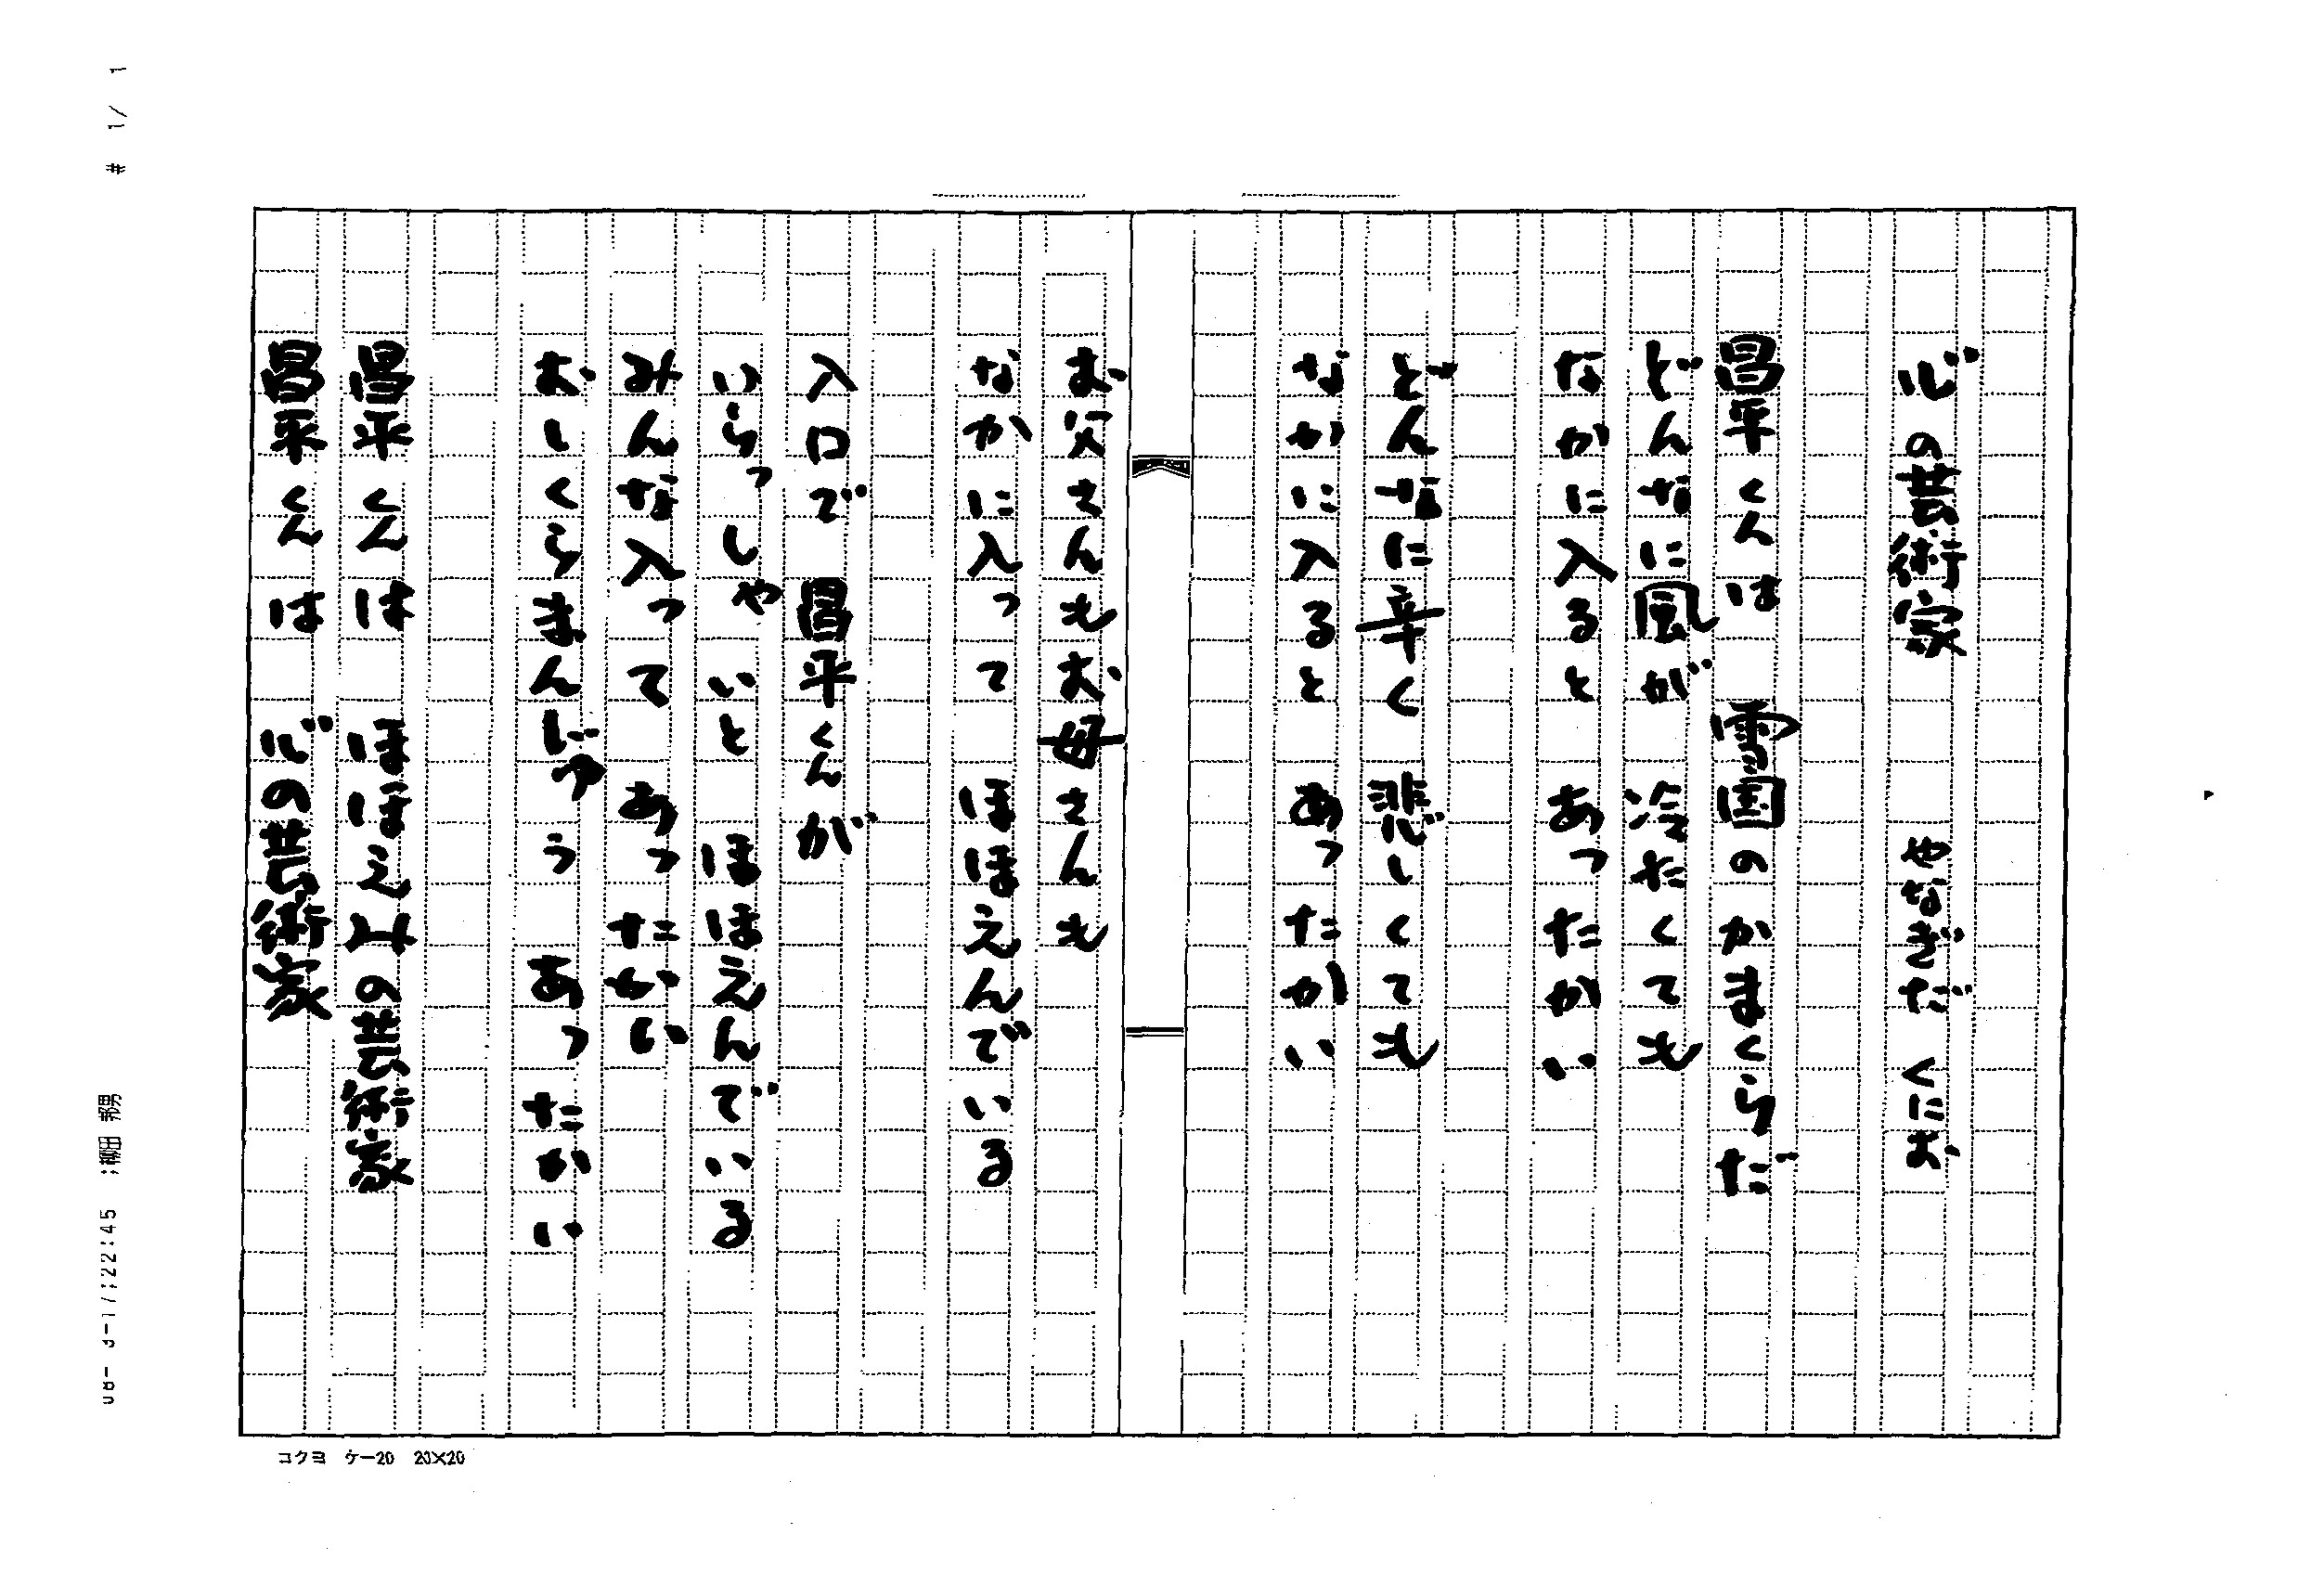 心の芸術家　　やなぎだ くにお
昌平くんは　雪国のかまくらだ
どんなに風が　冷たくても
なかに入ると　あったかい
どんなに辛く　悲しくても
なかに入ると　あったかい
お父さんもお母さんも
なかに入って　ほほえんでいる
入口で　昌平くんが
いらっしゃいと　ほほえんでいる
みんな入って　あったかい
おしくらまんじゅう　あったかい
昌平くんは　ほほえみの芸術家
昌平くんは　心の芸術家
コクヨ ケー20 20×20
;柳田 邦男
# 1/ 1